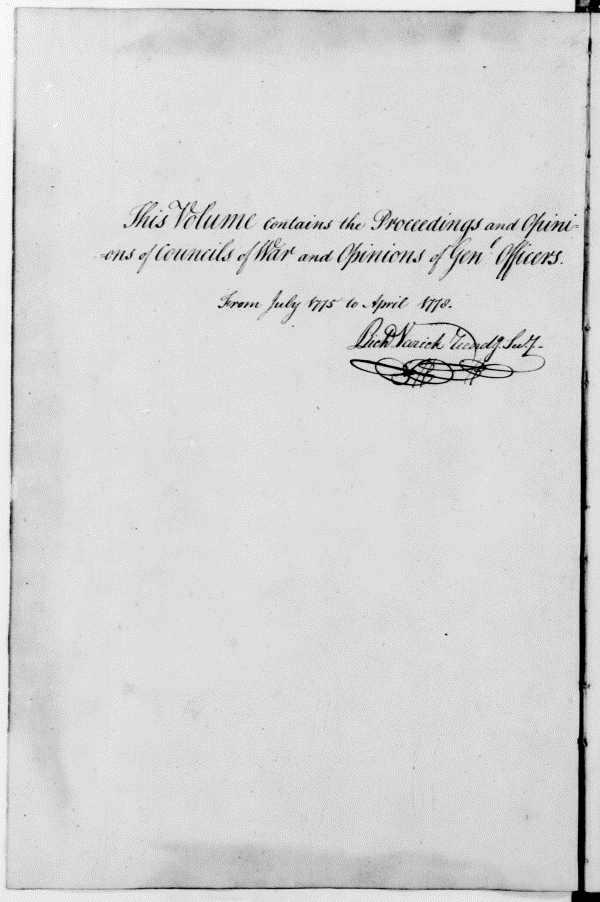 This Volume contains the Proceedings and Opini-
-ons of Councils of War and Opinions of Genl. Officers.
From July 1775 to April 1778.
Richd. Varick Recordg. Secy.